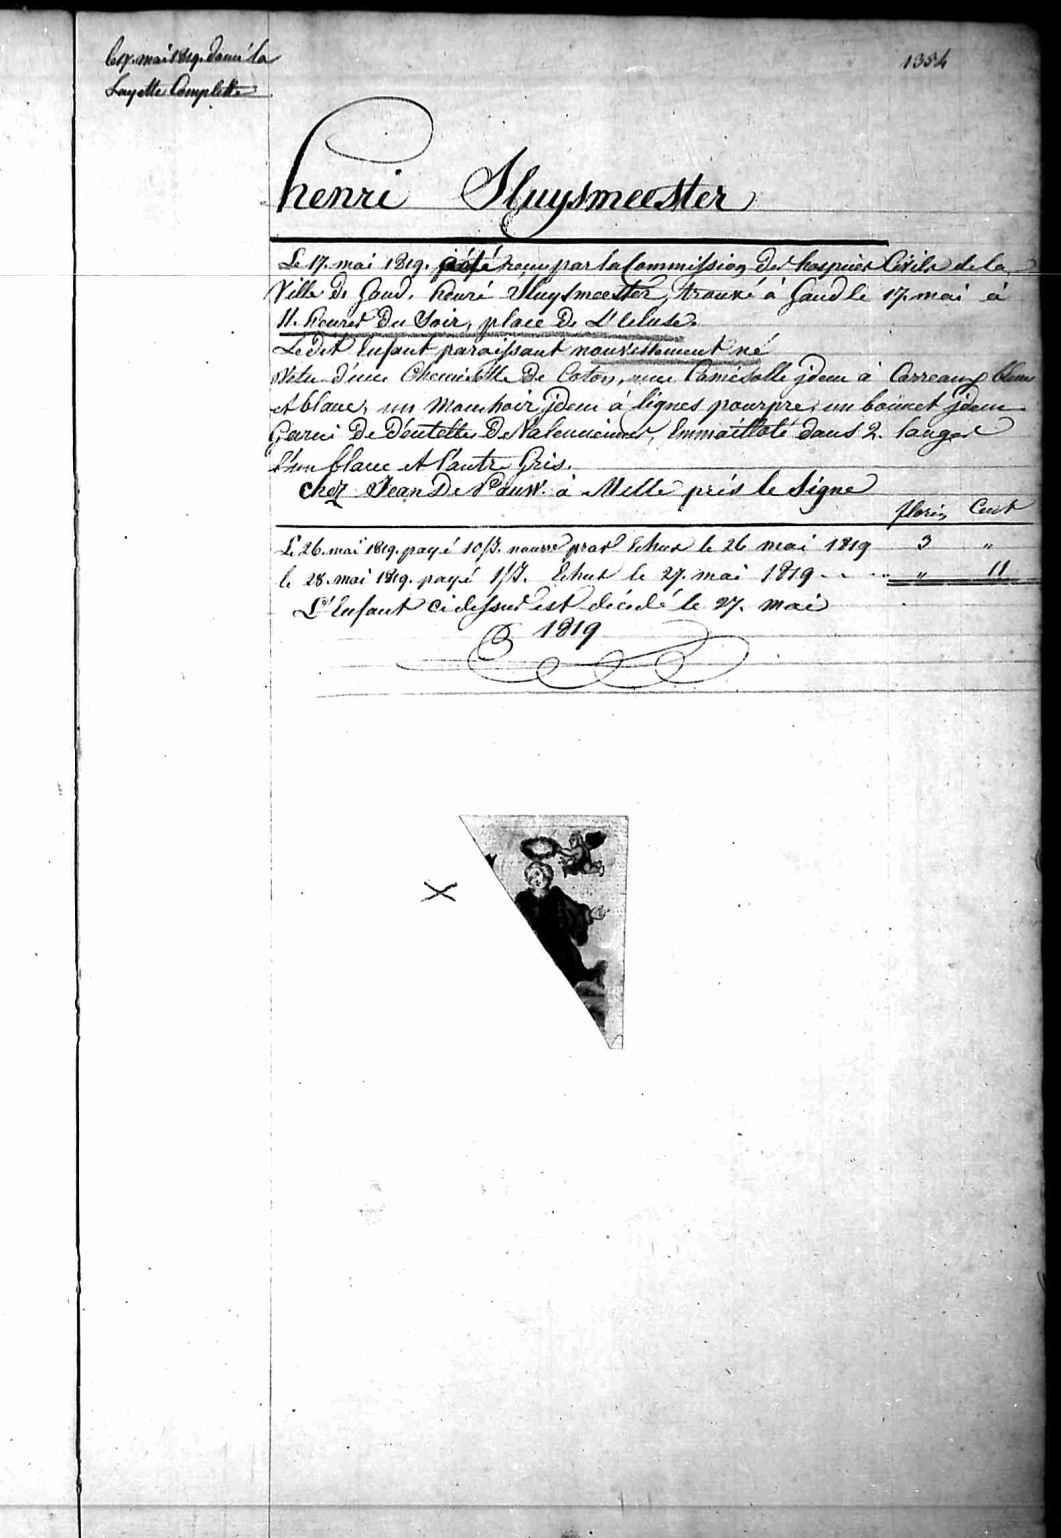 le 17. mai 1819. donné la
Layette Complette
1354
henri Sluysmeester
Le 17. mai 1819. a été reçu par la Commission des hospices Civils de la
Ville de Gand, henri Sluysmeester, trouvé à Gand le 17. mai à
11. heures du Soir, place de L'Ecluse.
Le dit Enfant paraissant nouvellement né
Vetu d'une Chemisette de Coton, une Camisolle jdem à Carreaux bleus
et blanc, un mouchoir jdem à lignes pourpre, un bonnet jdem
Garni de Dentelles de Valenciennes, Emmailloté dans 2. langes
l'un blanc et l'autre Gris.
chez Jean De Pauw. à Melle près le Signe
florins Cents
Le 26. mai 1819. payé 10/J. nourre Echus le 26 mai 1819 3 "
le 28. mai 1819. payé 1/J. Echus le 27. mai 1819 . . . . " 11
L'Enfant ci dessus est décédé le 27. mai
1819
X